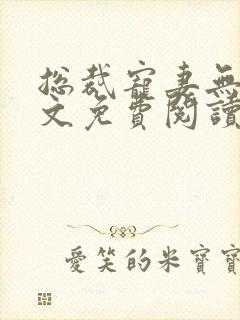 總裁寵妻無
文免費閱讀
愛笑的米寶寶